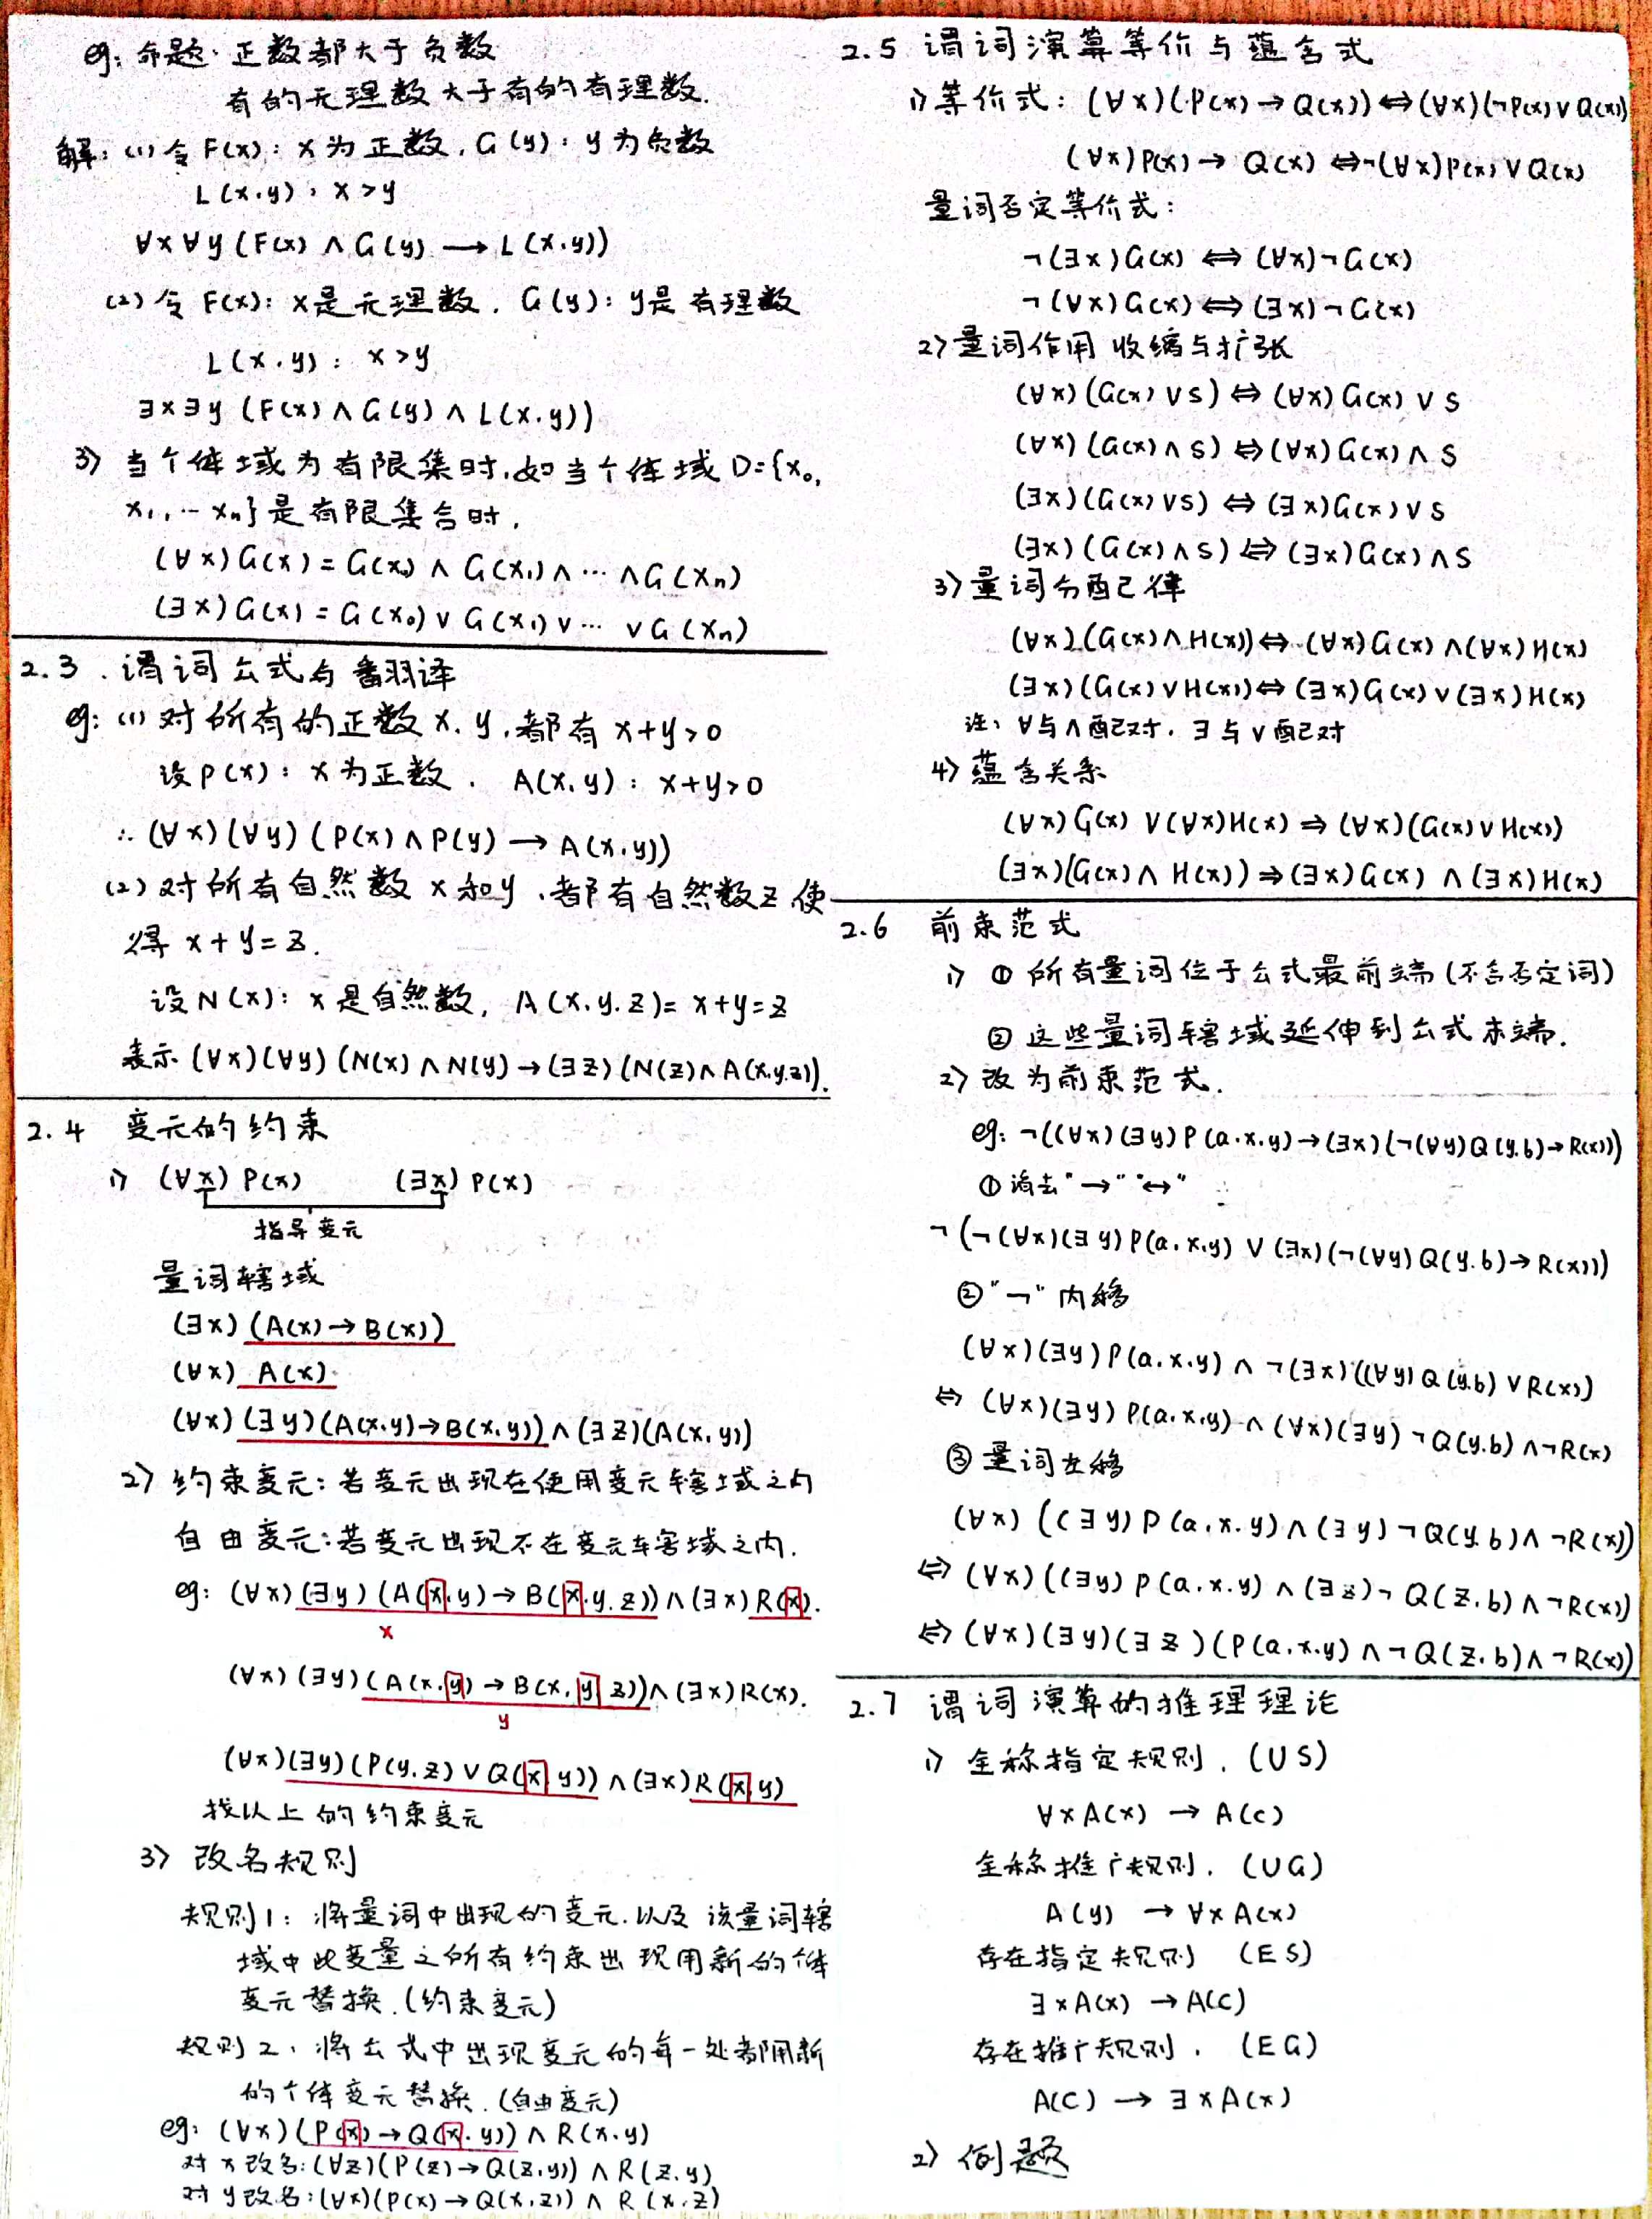 eg: 命题: 正数都大于负数
有的无理数大于有的有理数.
解: (1) 令 F(x): x 为正数, G(y): y 为负数
L(x.y): x>y
∀x∀y(F(x)∧G(y)→L(x.y))
(2) 令 F(x): x是无理数. G(y): y是有理数
L(x.y): x>y
∃x∃y(F(x)∧G(y)∧L(x.y))
3) 当个体域为有限集时,如当个体域 D={x₀,
x₁,…xₙ}是有限集合时,
(∀x)G(x)=G(x₀)∧G(x₁)∧…∧G(xₙ)
(∃x)G(x)=G(x₀)∨G(x₁)∨…∨G(xₙ)
2.3. 谓词公式与翻译
eg: (1) 对所有的正数 x.y,都有 x+y>0
设P(x): x为正数. A(x,y): x+y>0
∴(∀x)(∀y)(P(x)∧P(y)→A(x.y))
(2) 对所有自然数 x 和y,都有自然数z,使
得 x+y=z.
设N(x): x是自然数, A(x.y.z)= x+y=z
表示(∀x)(∀y)(N(x)∧N(y)→(∃z)(N(z)∧A(x.y.z)).
2.4 变元的约束
1) (∀x)P(x) (∃x)P(x)
指导变元
量词辖域
(∃x)(A(x)→B(x))
(∀x)A(x).
(∀x)(∃y)(A(x.y)→B(x.y))∧(∃z)(A(x,y))
2) 约束变元: 若变元出现在使用变元辖域之内
自由变元: 若变元出现不在变元辖域之内.
eg: (∀x)(∃y)(A(x.y)→B(x.y.z))∧(∃x)R(x).
x
(∀x)(∃y)(A(x.y)→B(x,y z))∧(∃x)R(x).
y
(∀x)(∃y)(P(y.z)∨Q(x y))∧(∃x)R(x,y)
找以上的约束变元
3) 改名规则
规则1: 将量词中出现的变元.以及该量词辖
域中此变量之所有约束出现用新的个体
变元替换.(约束变元)
规则2、将公式中出现变元的每一处都用新
的个体变元替换.(自由变元)
eg: (∀x)(P(x)→Q(x.y))∧R(x.y)
对x改名:(∀z)(P(z)→Q(z.y))∧R(z.y)
对y改名:(∀x)(P(x)→Q(x.z))∧R(x.z)
2.5 谓词演算等价与蕴含式
1) 等价式: (∀x)(P(x)→Q(x))⇔(∀x)(¬P(x)∨Q(x))
(∀x)P(x)→Q(x)⇔¬(∀x)P(x)∨Q(x)
量词否定等价式:
¬(∃x)G(x)⇔(∀x)¬G(x)
¬(∀x)G(x)⇔(∃x)¬G(x)
2) 量词作用 收缩与扩张
(∀x)(G(x)∨S)⇔(∀x)G(x)∨S
(∀x)(G(x)∧S)⇔(∀x)G(x)∧S
(∃x)(G(x)∨S)⇔(∃x)G(x)∨S
(∃x)(G(x)∧S)⇔(∃x)G(x)∧S
3) 量词分配律
(∀x)(G(x)∧H(x))⇔(∀x)G(x)∧(∀x)H(x)
(∃x)(G(x)∨H(x))⇔(∃x)G(x)∨(∃x)H(x)
注: ∀与∧配对. ∃与∨配对
4) 蕴含关系
(∀x)G(x)∨(∀x)H(x)⇒(∀x)(G(x)∨H(x))
(∃x)(G(x)∧H(x))⇒(∃x)G(x)∧(∃x)H(x)
2.6 前束范式
1) ① 所有量词位于公式最前端(不含否定词)
② 这些量词辖域延伸到公式末端.
2) 改为前束范式.
eg: ¬((∀x)(∃y)P(a.x.y)→(∃x)(¬(∀y)Q(y.b)→R(x)))
① 消去"→""↔"
¬(¬(∀x)(∃y)P(a.x.y)∨(∃x)(¬(∀y)Q(y.b)→R(x)))
②"¬"内移
(∀x)(∃y)P(a.x.y)∧¬(∃x)((∀y)Q(y.b)∨R(x))
⇔(∀x)(∃y)P(a.x.y)∧(∀x)(∃y)¬Q(y.b)∧¬R(x)
③ 量词左移
(∀x)((∃y)P(a.x.y)∧(∃y)¬Q(y.b)∧¬R(x))
⇔(∀x)((∃y)P(a.x.y)∧(∃z)¬Q(z.b)∧¬R(x))
⇔(∀x)(∃y)(∃z)(P(a.x.y)∧¬Q(z.b)∧¬R(x))
2.7 谓词演算的推理理论
1) 全称指定规则. (US)
∀xA(x)→A(c)
全称推广规则. (UG)
A(y)→∀xA(x)
存在指定规则 (ES)
∃xA(x)→A(c)
存在推广规则. (EG)
A(c)→∃xA(x)
2) 例题